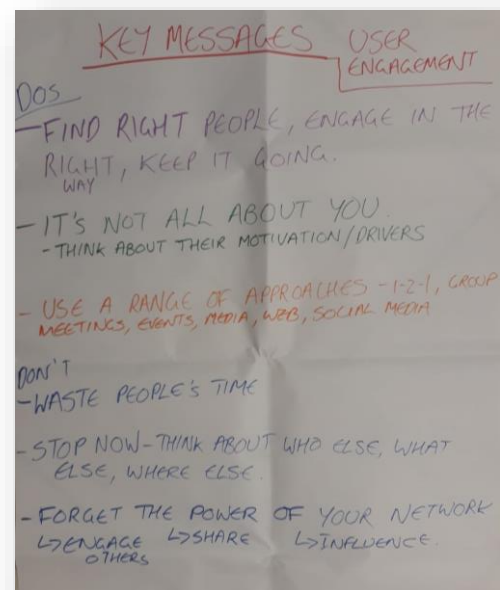 KEY MESSAGES USER
ENGAGEMENT
DOS
- FIND RIGHT PEOPLE, ENGAGE IN THE
RIGHT, KEEP IT GOING.
WAY
- IT'S NOT ALL ABOUT YOU.
- THINK ABOUT THEIR MOTIVATION/DRIVERS
- USE A RANGE OF APPROACHES - 1-2-1, GROUP
MEETINGS, EVENTS, MEDIA, WEB, SOCIAL MEDIA
DON'T
- WASTE PEOPLE'S TIME
- STOP NOW - THINK ABOUT WHO ELSE, WHAT
ELSE, WHERE ELSE.
- FORGET THE POWER OF YOUR NETWORK
↳ ENGAGE ↳ SHARE ↳ INFLUENCE.
OTHERS